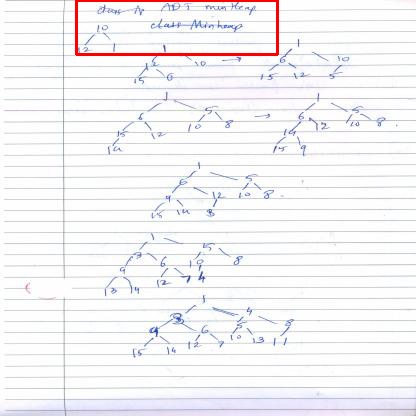 class A: ADT minHeap
class Minheap
10
12 1
1
12 10
15 6
→
1
6 10
15 12 5
1
6 5
15 12 10 8
14
→
1
6 5
14 12 10 8
15 9
1
6 5
9 12 10 8
15 14
1
5
9 6 10 8
14 12 7 4
1
3 4
9 6 5 8
15 14 12 7 10 13 11